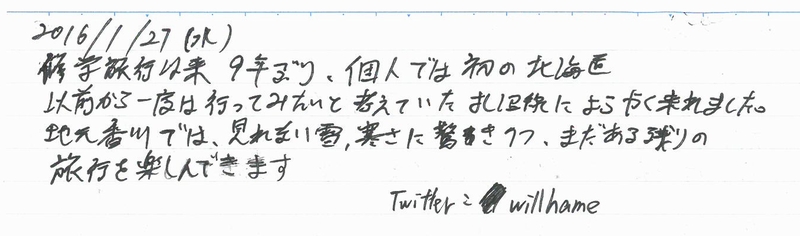 2016/1/27(水)
修学旅行以来 9年ぶり、個人では初の北海道
以前から一度は行ってみたいと考えていた よしば線にようやく来れました。
地元香川では、見れない雪,寒さに驚きつつ、まだある残りの
旅行を楽しんできます
Twitter: willhame